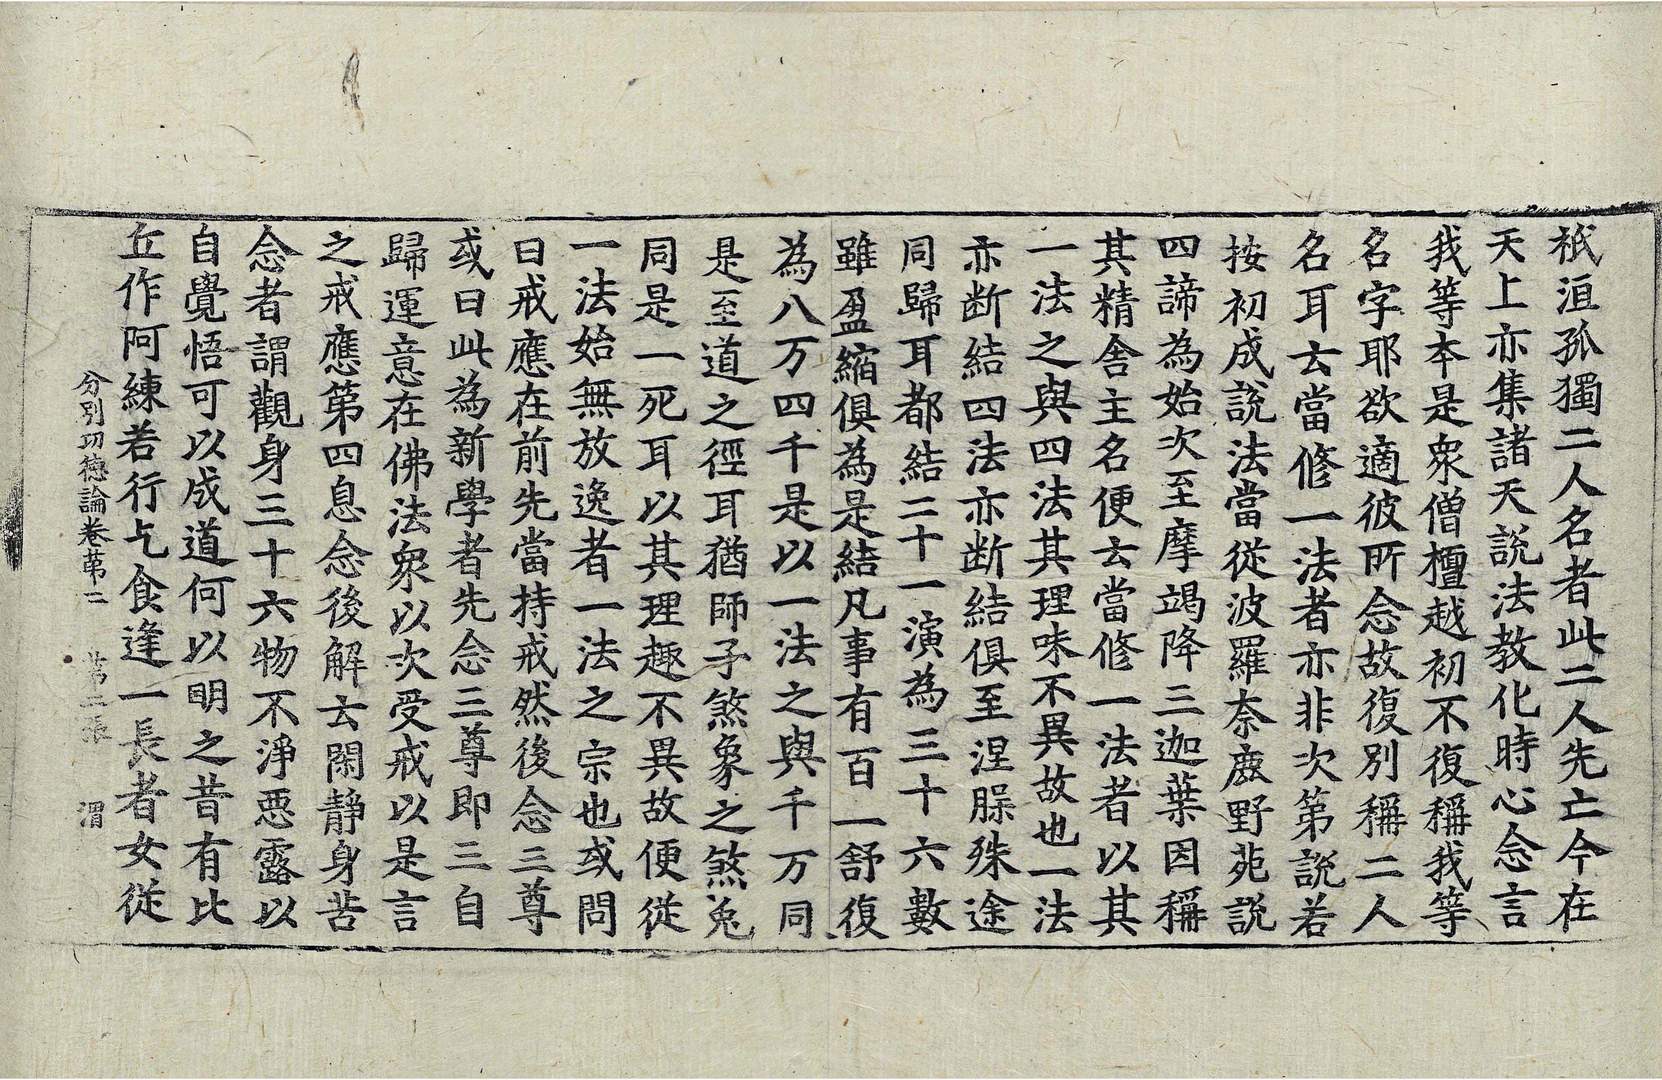 祇洹孤獨二人名者此二人先亡今在
天上亦集諸天說法教化時心念言
我等本是衆僧檀越初不復稱我等
名字耶欲適彼所念故復別稱二人
名耳去當修一法者亦非次第說若
按初成說法當從波羅奈鹿野苑說
四諦為始次至摩竭降三迦葉因稱
其精舍主名便去當修一法者以其
一法之與四法其理味不異故也一法
亦断結四法亦断結俱至涅𣵀殊途
同歸耳都結二十一演為三十六數
雖盈縮俱為是結凡事有百一舒復
為八万四千是以一法之與千万同
是至道之徑耳猶師子煞象之煞兎
同是一死耳以其理趣不異故便從
一法始無放逸者一法之宗也或問
曰戒應在前先當持戒然後念三尊
或曰此為新學者先念三尊即三自
歸運意在佛法衆以次受戒以是言
之戒應第四息念後解去閑靜身苦
念者謂觀身三十六物不淨惡露以
自覺悟可以成道何以明之昔有比
丘作阿練若行乞食逢一長者女從
分別功德論卷第二 第二張 渭